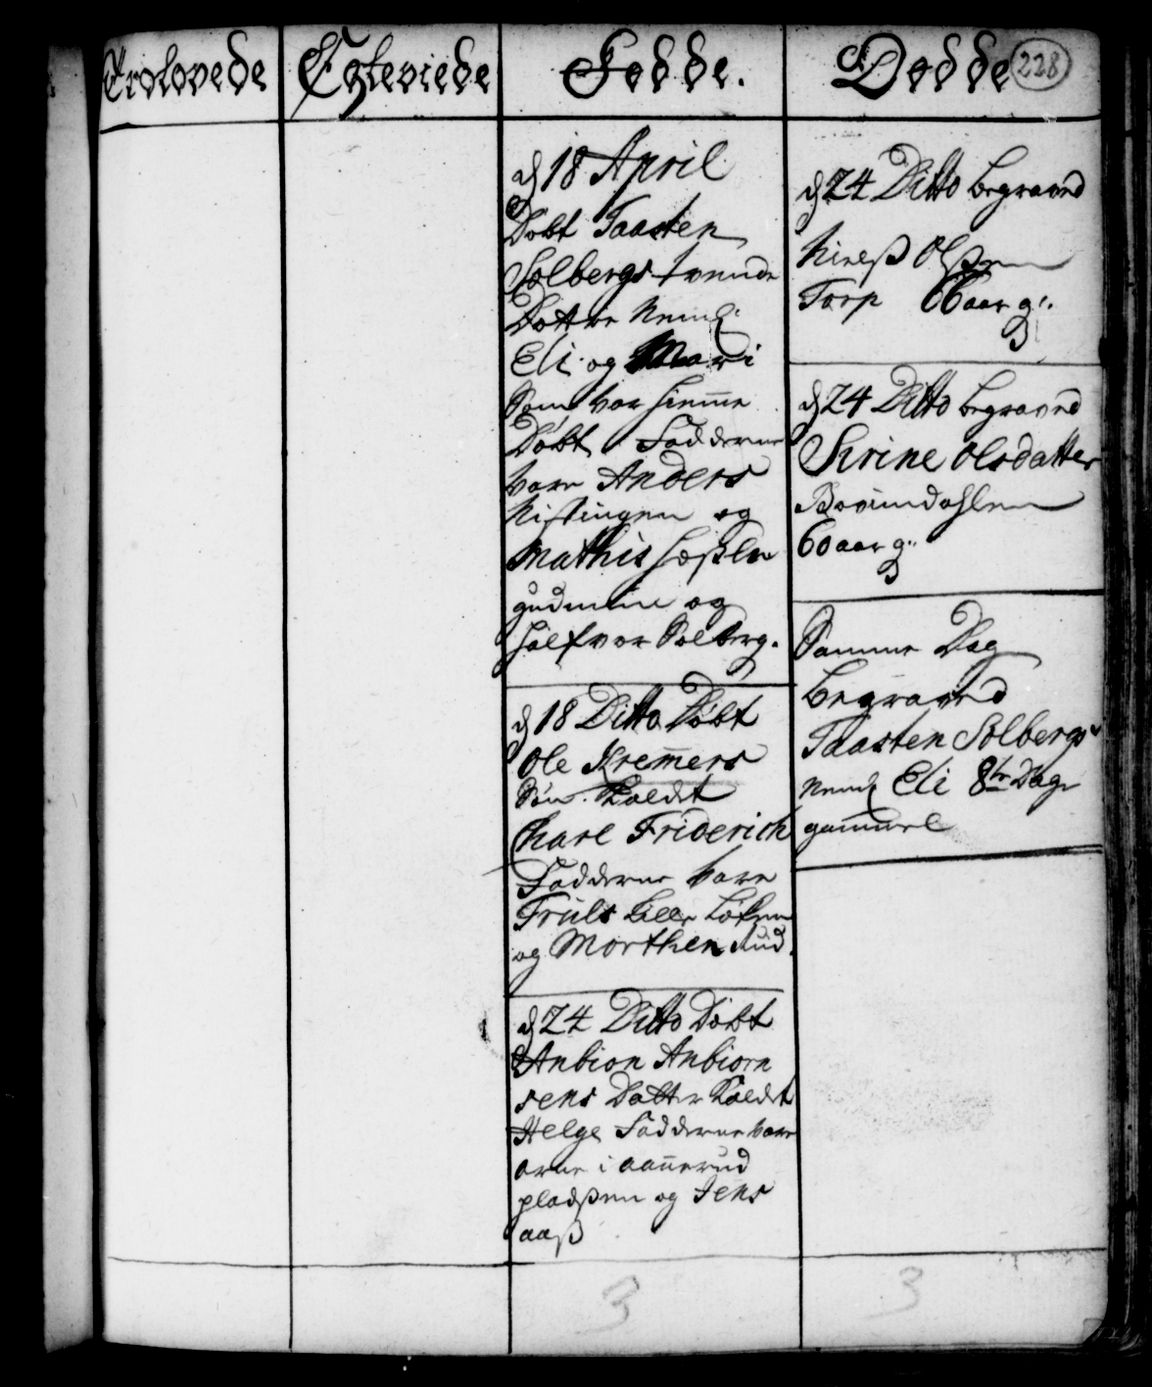 Trolovede
Egteviede
Fødde.
Dødde
228
d 18 April
Døbt Taasten
Solbergs tvende
Døttre Neml:
Eli og Mari
Som var hiemme
Døbt. Fadderne
vare Anders
Kistingen og
Mathis
gudmine og
Halfvor Solberg.
d 18 Ditto Døbt
Ole Kremers
Søn. Kaldet
Charl Friderich
Fadderne vare
Truls Lille Løken
og Morthen Rud.
d 24 Ditto Døbt
Anbion Anbiorn
sens Datter Kaldet
Helge Fadderne vare
arne i aanerud
pladßen og Jens
aaß
3
d 24 Ditto begraved
Nielß Olßen
Torp 66 aar g:
d 24 Ditto begraved
Sirine Olsdatter
60 aar g:
Samme Dag
begraved
Taasten Solbergs
Neml Eli 8te Dage
gammel
3